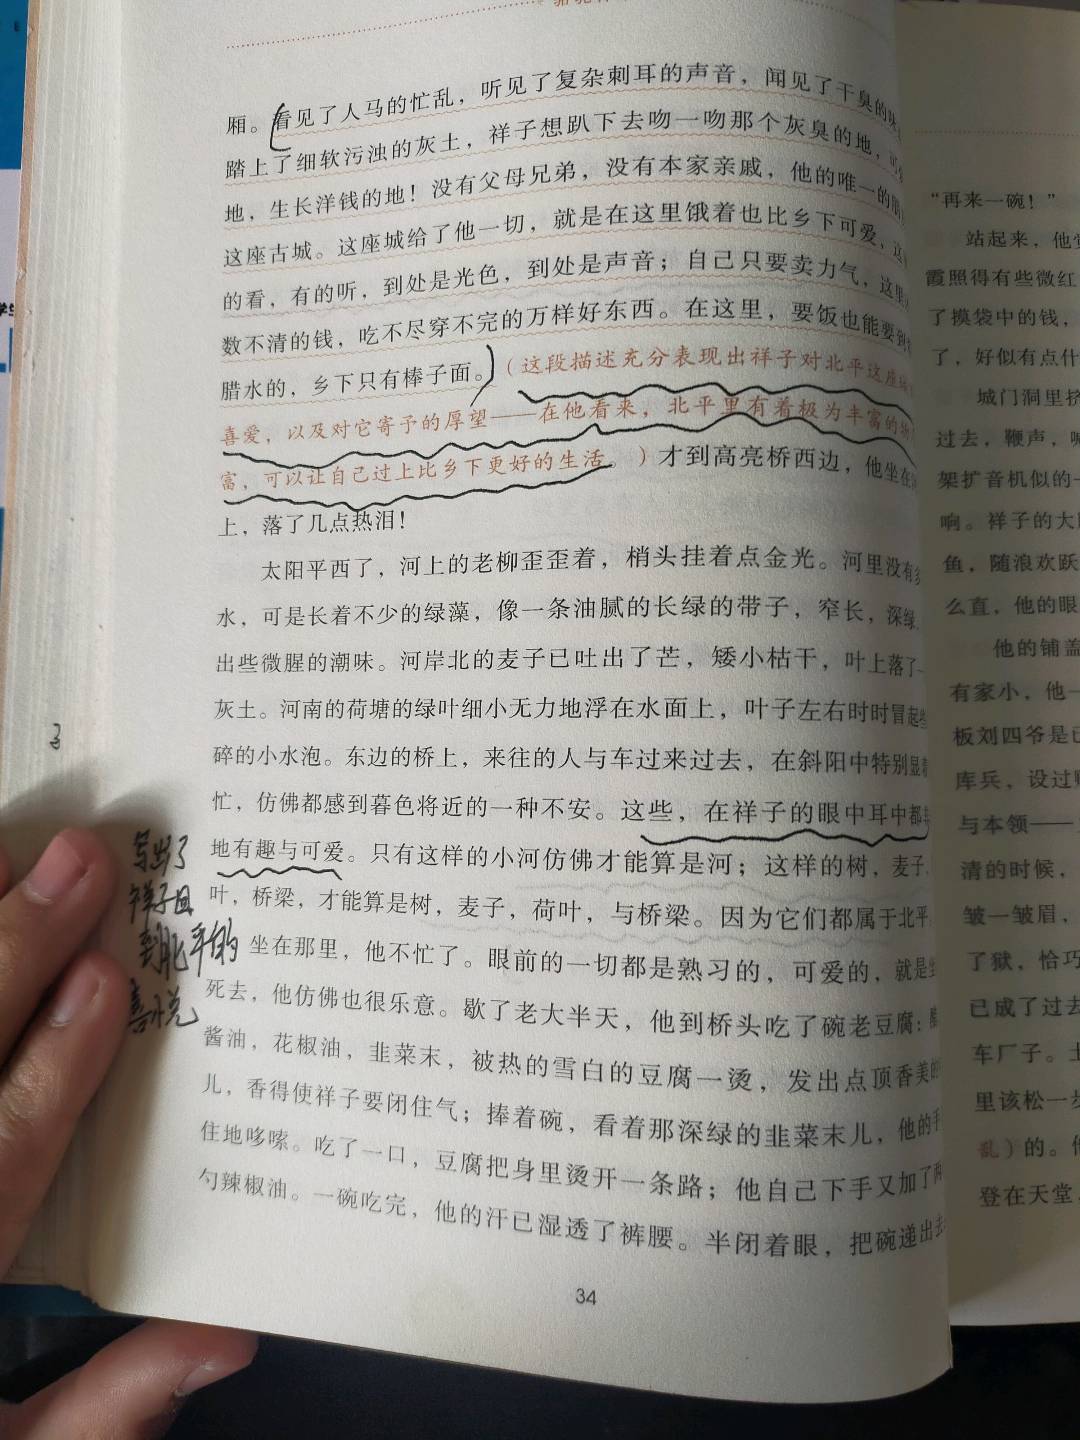 厢。看见了人马的忙乱，听见了复杂刺耳的声音，闻见了干臭的味
踏上了细软污浊的灰土，祥子想趴下去吻一吻那个灰臭的地，可
地，生长洋钱的地！没有父母兄弟，没有本家亲戚，他的唯一的朋
这座古城。这座城给了他一切，就是在这里饿着也比乡下可爱，这
的看，有的听，到处是光色，到处是声音；自己只要卖力气，这里
数不清的钱，吃不尽穿不完的万样好东西。在这里，要饭也能要到
腊水的，乡下只有棒子面。（这段描述充分表现出祥子对北平这座
喜爱，以及对它寄予的厚望——在他看来，北平里有着极为丰富的物
富，可以让自己过上比乡下更好的生活。）才到高亮桥西边，他坐在
上，落了几点热泪！
太阳平西了，河上的老柳歪歪着，梢头挂着点金光。河里没有多
水，可是长着不少的绿藻，像一条油腻的长绿的带子，窄长，深绿，
出些微腥的潮味。河岸北的麦子已吐出了芒，矮小枯干，叶上落了一
灰土。河南的荷塘的绿叶细小无力地浮在水面上，叶子左右时时冒起些
碎的小水泡。东边的桥上，来往的人与车过来过去，在斜阳中特别显着
忙，仿佛都感到暮色将近的一种不安。这些，在祥子的眼中耳中都
地有趣与可爱。只有这样的小河仿佛才能算是河；这样的树，麦子，
叶，桥梁，才能算是树，麦子，荷叶，与桥梁。因为它们都属于北平。
坐在那里，他不忙了。眼前的一切都是熟习的，可爱的，就是坐
死去，他仿佛也很乐意。歇了老大半天，他到桥头吃了碗老豆腐：醋
酱油，花椒油，韭菜末，被热的雪白的豆腐一烫，发出点顶香美的
儿，香得使祥子要闭住气；捧着碗，看着那深绿的韭菜末儿，他的手
住地哆嗦。吃了一口，豆腐把身里烫开一条路；他自己下手又加了两
勺辣椒油。一碗吃完，他的汗已湿透了裤腰。半闭着眼，把碗递出去
34
写出了
祥子回
到北平的
喜悦
“再来一碗！”
站起来，他
霞照得有些微红
了摸袋中的钱，
了，好似有点什
城门洞里挤
过去，鞭声，喇
架扩音机似的一
响。祥子的大
鱼，随浪欢跃
么直，他的眼
他的铺盖
有家小，他一
板刘四爷是已
库兵，设过赌
与本领——
清的时候，
皱一皱眉，
了狱，恰巧
已成了过去
车厂子。土
里该松一步
乱）的。他
登在天堂